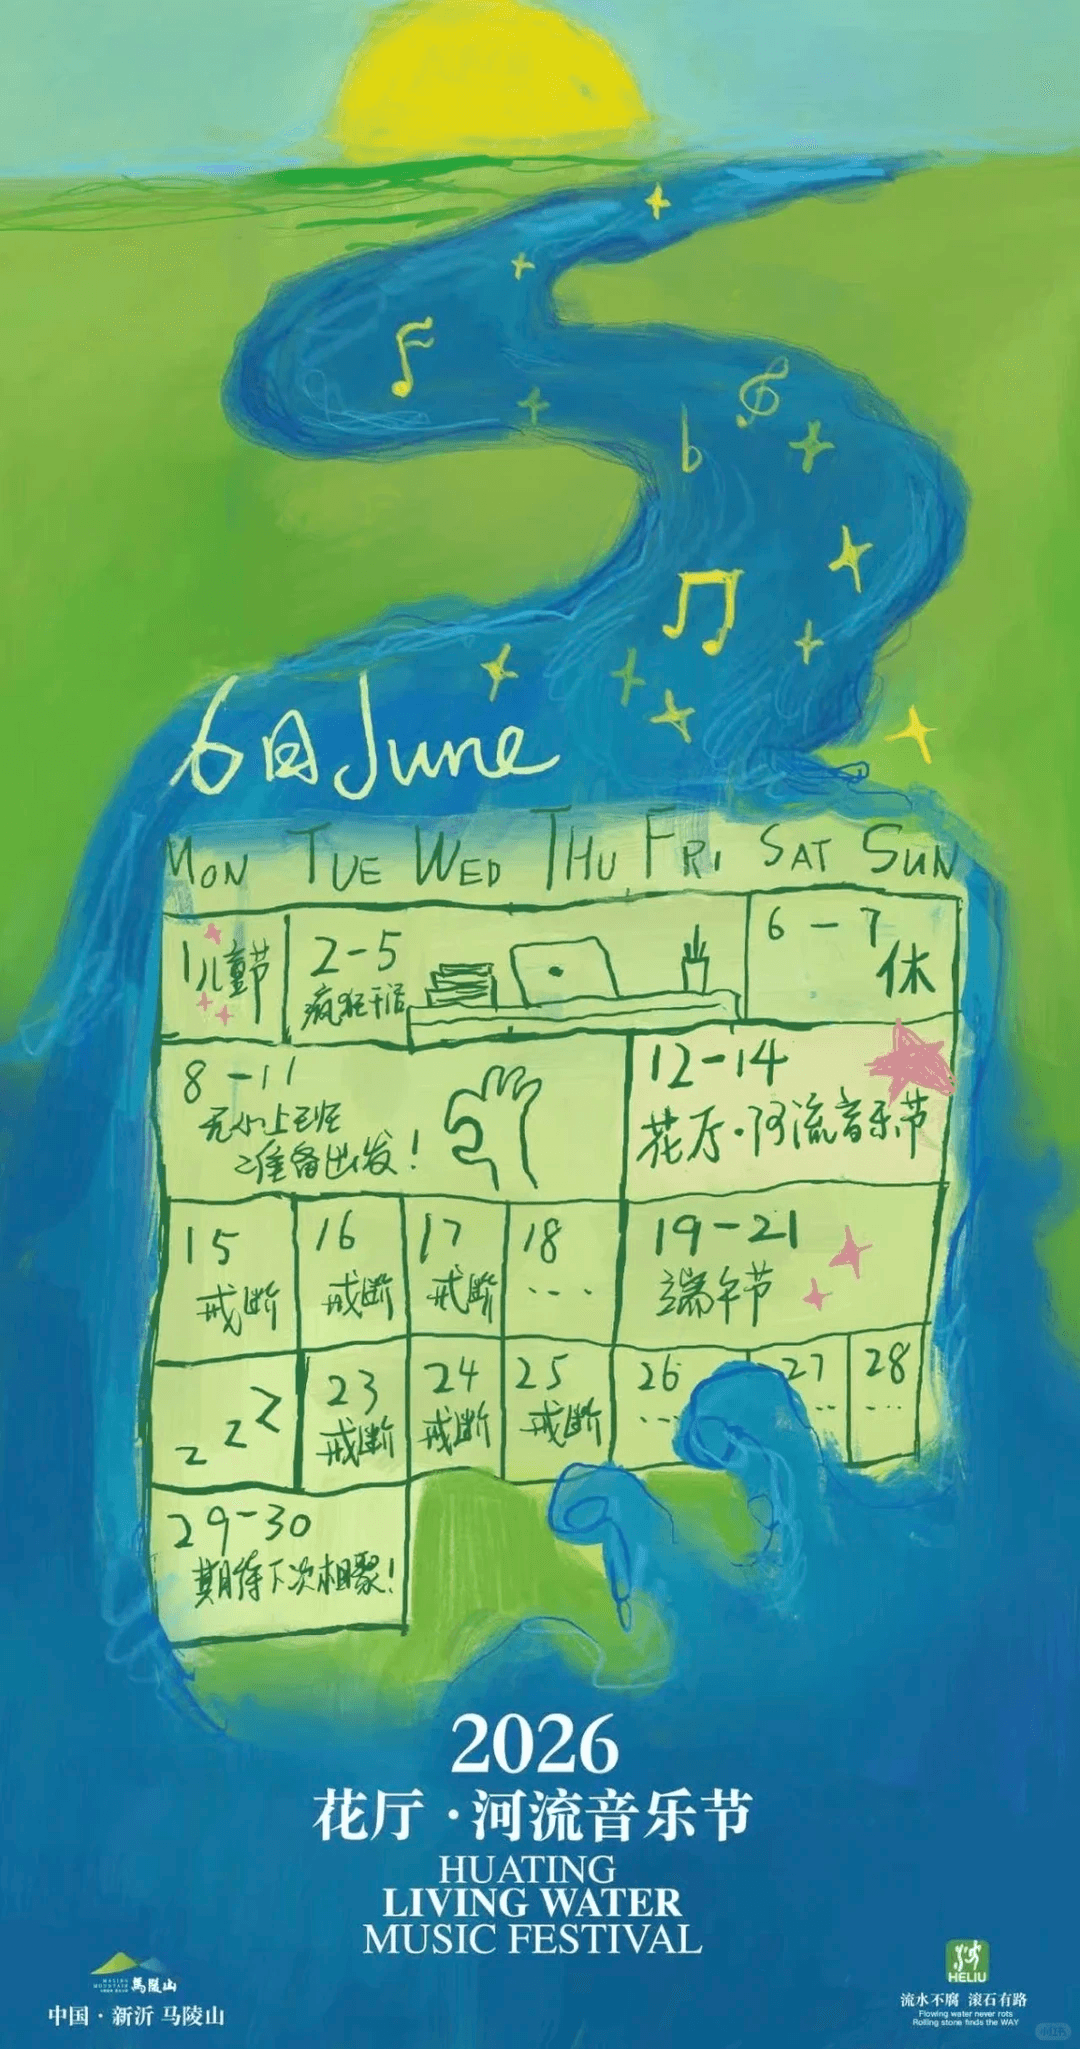 6月 June
MON TUE WED THU FRI SAT SUN
1 儿童节
2-5
疯狂干活
6-7
休
8-11
无心上班
准备出发！
12-14
花厅·河流音乐节
15
戒断
16
戒断
17
戒断
18
...
19-21
端午节
z z Z
23
戒断
24
戒断
25
戒断
26
...
27
...
28
...
29-30
期待下次相聚！
2026
花厅·河流音乐节
HUATING
LIVING WATER
MUSIC FESTIVAL
馬陵山
中国·新沂 马陵山
HELIU
流水不腐 滚石有路
Flowing water never rots
Rolling stone finds the WAY